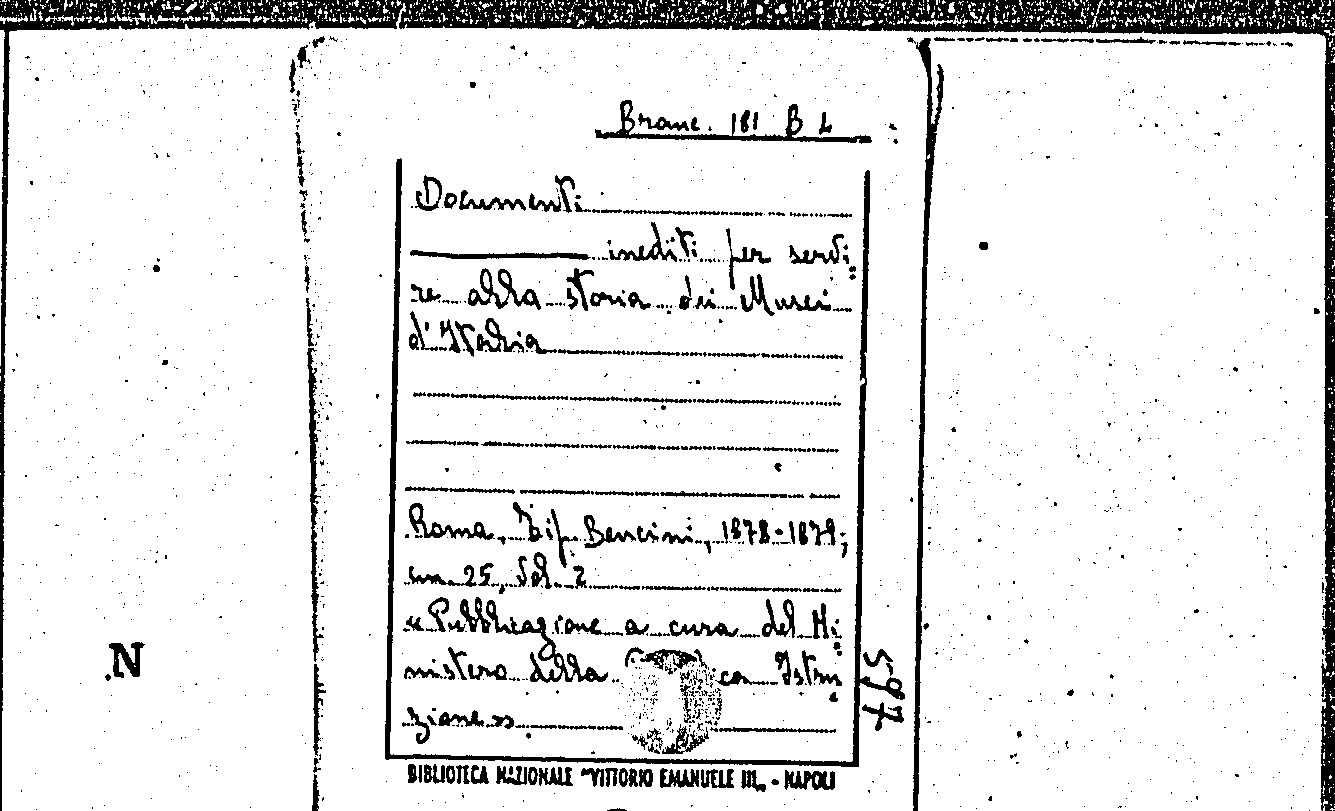 Branc. 181 B 2
Documenti
inediti per servi=
re alla storia dei Musei
d'Italia
Roma, Tip. Bencini, 1878-1879;
cm. 25, Vol. 2
« Pubblicazione a cura del Mi=
nistero della ca Istru
zione »
597
N
BIBLIOTECA NAZIONALE "VITTORIO EMANUELE III„ - NAPOLI